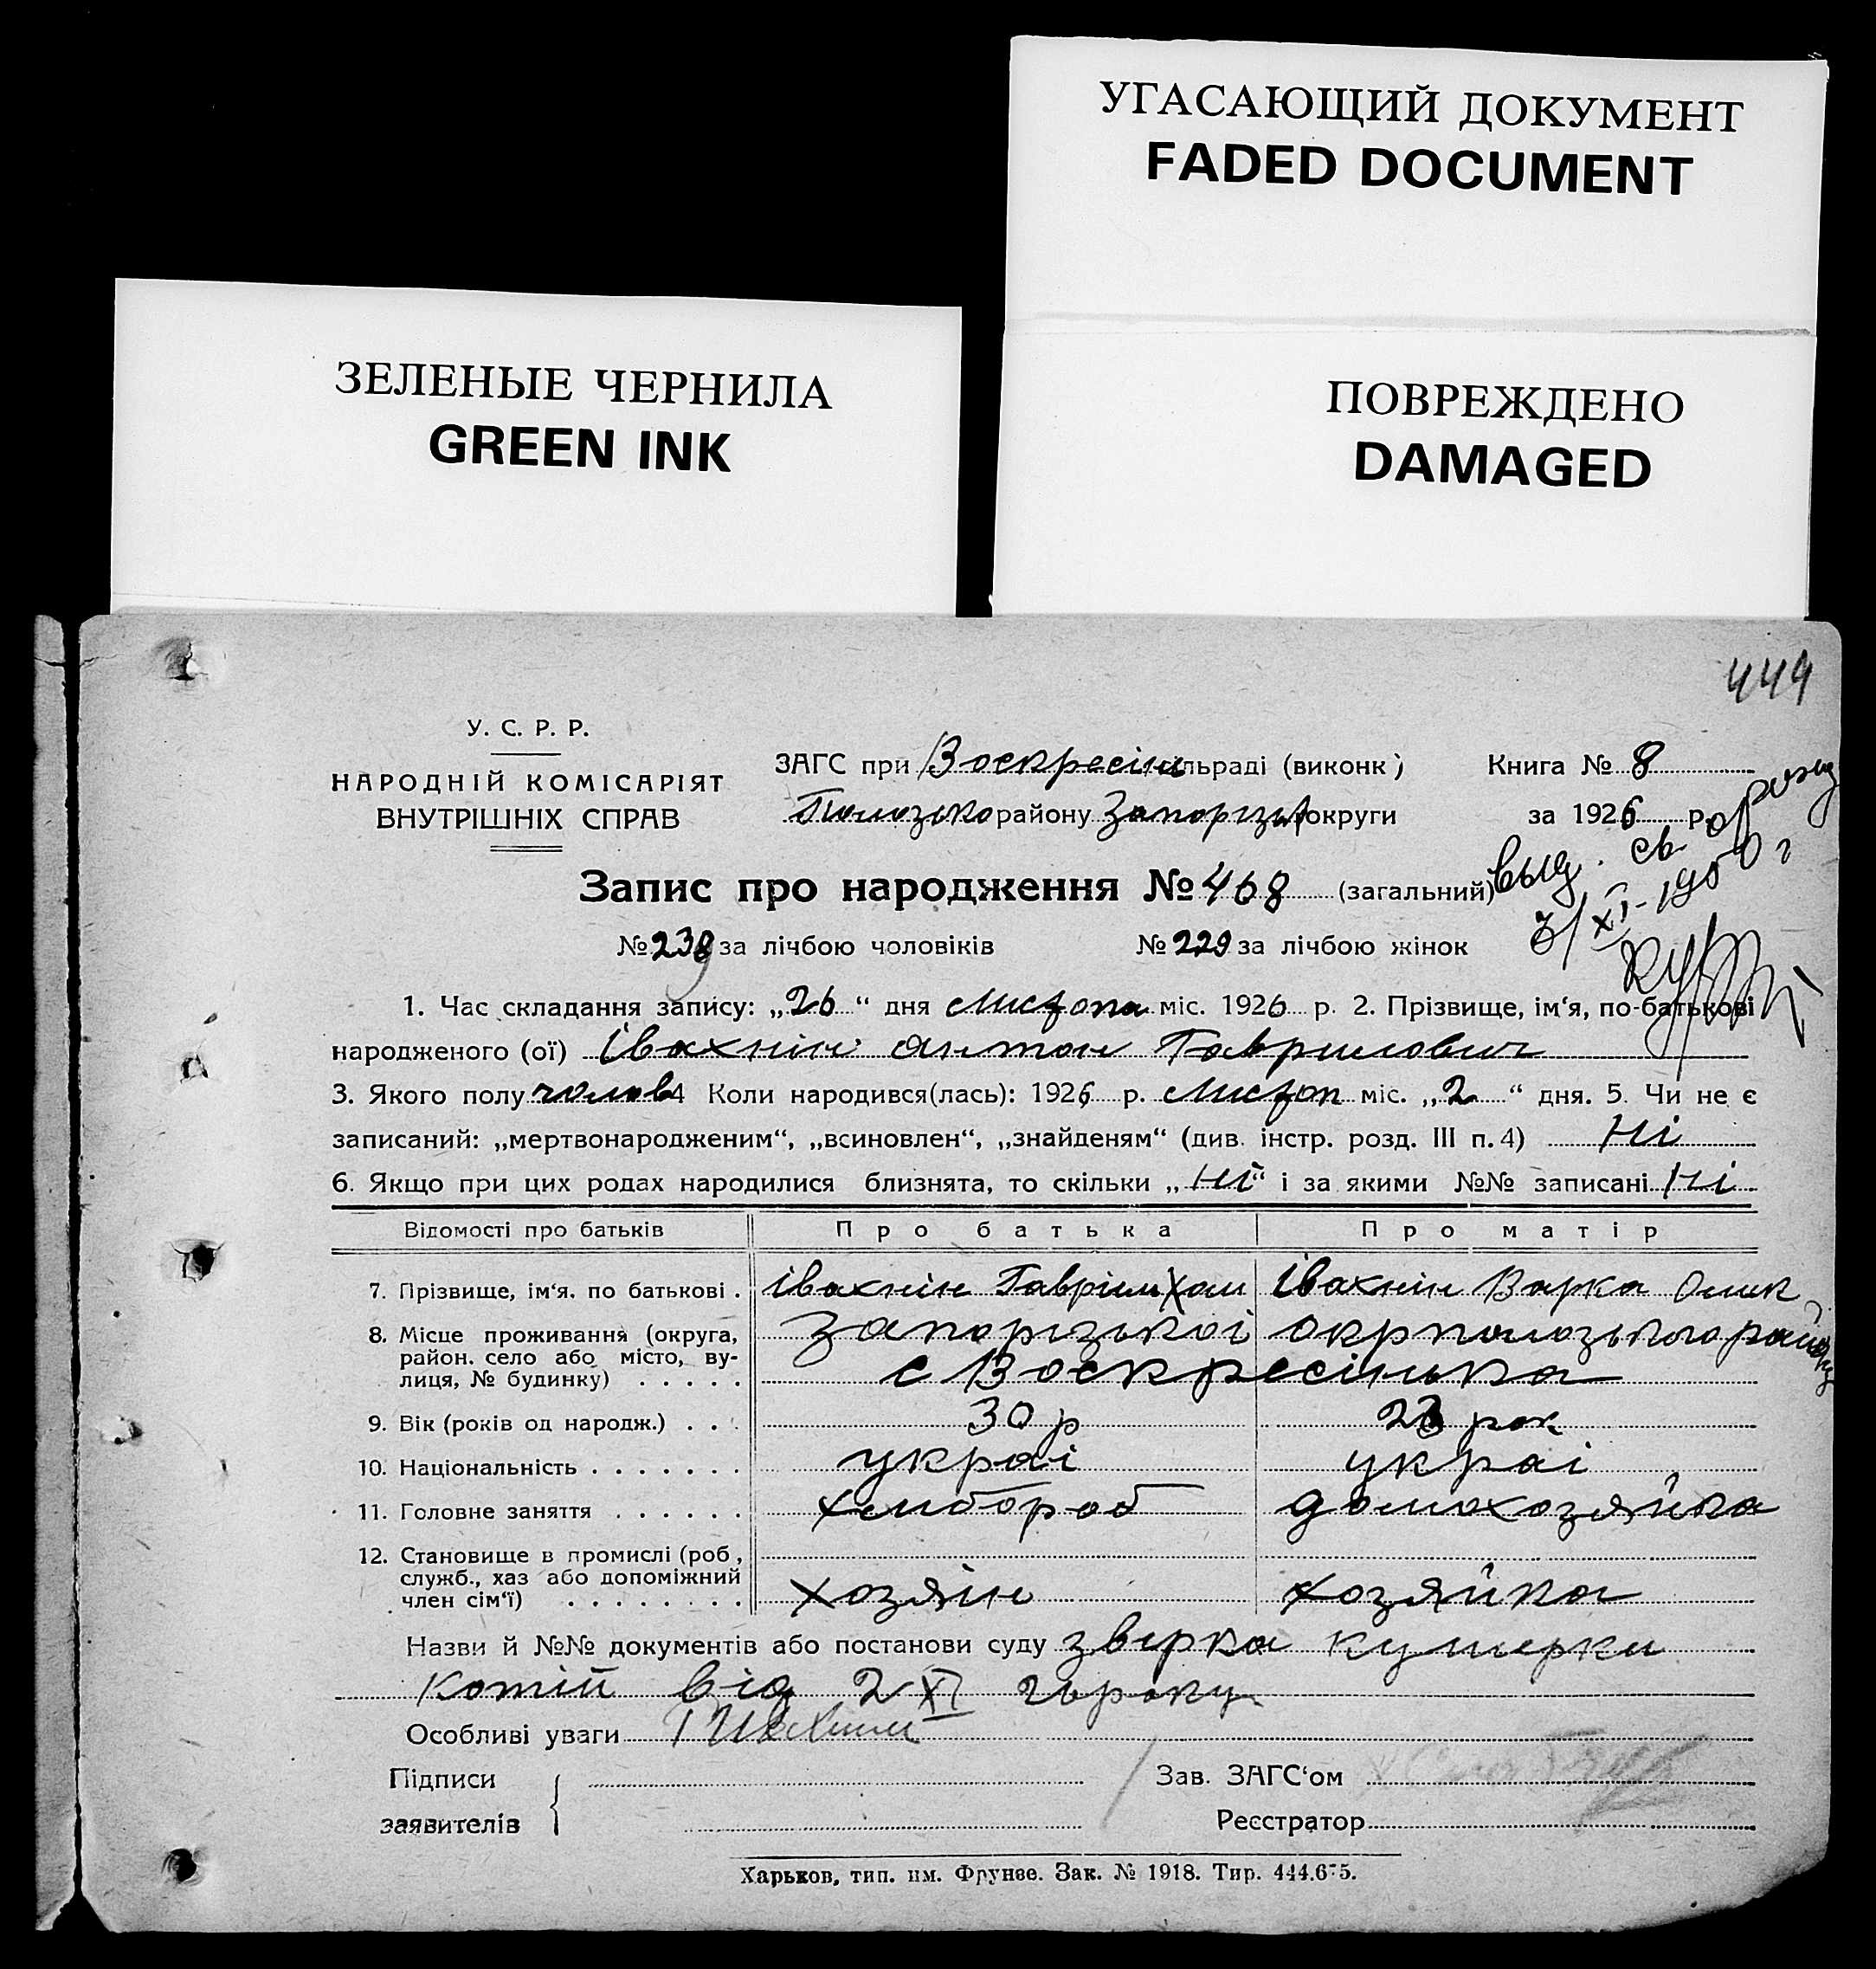 УГАСАЮЩИЙ ДОКУМЕНТ
FADED DOCUMENT
ЗЕЛЕНЫЕ ЧЕРНИЛА
GREEN INK
ПОВРЕЖДЕНО
DAMAGED
444
У. С. Р. Р.
НАРОДНІЙ КОМІСАРІЯТ
ВНУТРІШНІХ СПРАВ
ЗАГС при Воскресін сільраді (виконк)
Пологзько району Запорізьк округи
Книга № 8
за 1926 р.
выд. св о рожд
3/XI-1950 г
Запис про народження № 468 (загальний)
№ 239 за лічбою чоловіків № 229 за лічбою жінок
1. Час складання запису: „26“ дня Листопа міс. 1926 р. 2. Прізвище, ім‘я, по-батькові
народженого (ої) Івахнін Антон Гаврилович
3. Якого полу чолов 4 Коли народився(лась): 1926 р. Листоп міс. „2“ дня. 5. Чи не є
записаний: „мертвонародженим“, „всиновлен“, „знайденям“ (див. інстр. розд. III п. 4) Ні
6. Якщо при цих родах народилися близнята, то скільки „Ні“ і за якими №№ записані Ні
Відомості про батьків Про батька Про матір
7. Прізвище, ім‘я. по батькові . Івахнін Гавріил Хам Івахнін Варка Олик
8. Місце проживання (округа,
район. село або місто, ву-
лиця, № будинку) . . . . .
Запорізькоі окр пологзького району
с Воскресінька
9. Вік (років од народж.) . . . 30 р 23 рок
10. Національність . . . . . . . украі украі
11. Головне заняття . . . . . . хлибороб домохозяйка
12. Становище в промислі (роб,
служб., хаз або допоміжний
член сім‘ї) . . . . . . . .
хозяін хозяйка
Назви й №№ документів або постанови суду звірка
від 2 XI
Особливі уваги
Підписи
заявителів
Зав. ЗАГС‘ом
Реєстратор
Харьков, тип. им. Фрунзе. Зак. № 1918. Тир. 444.675.